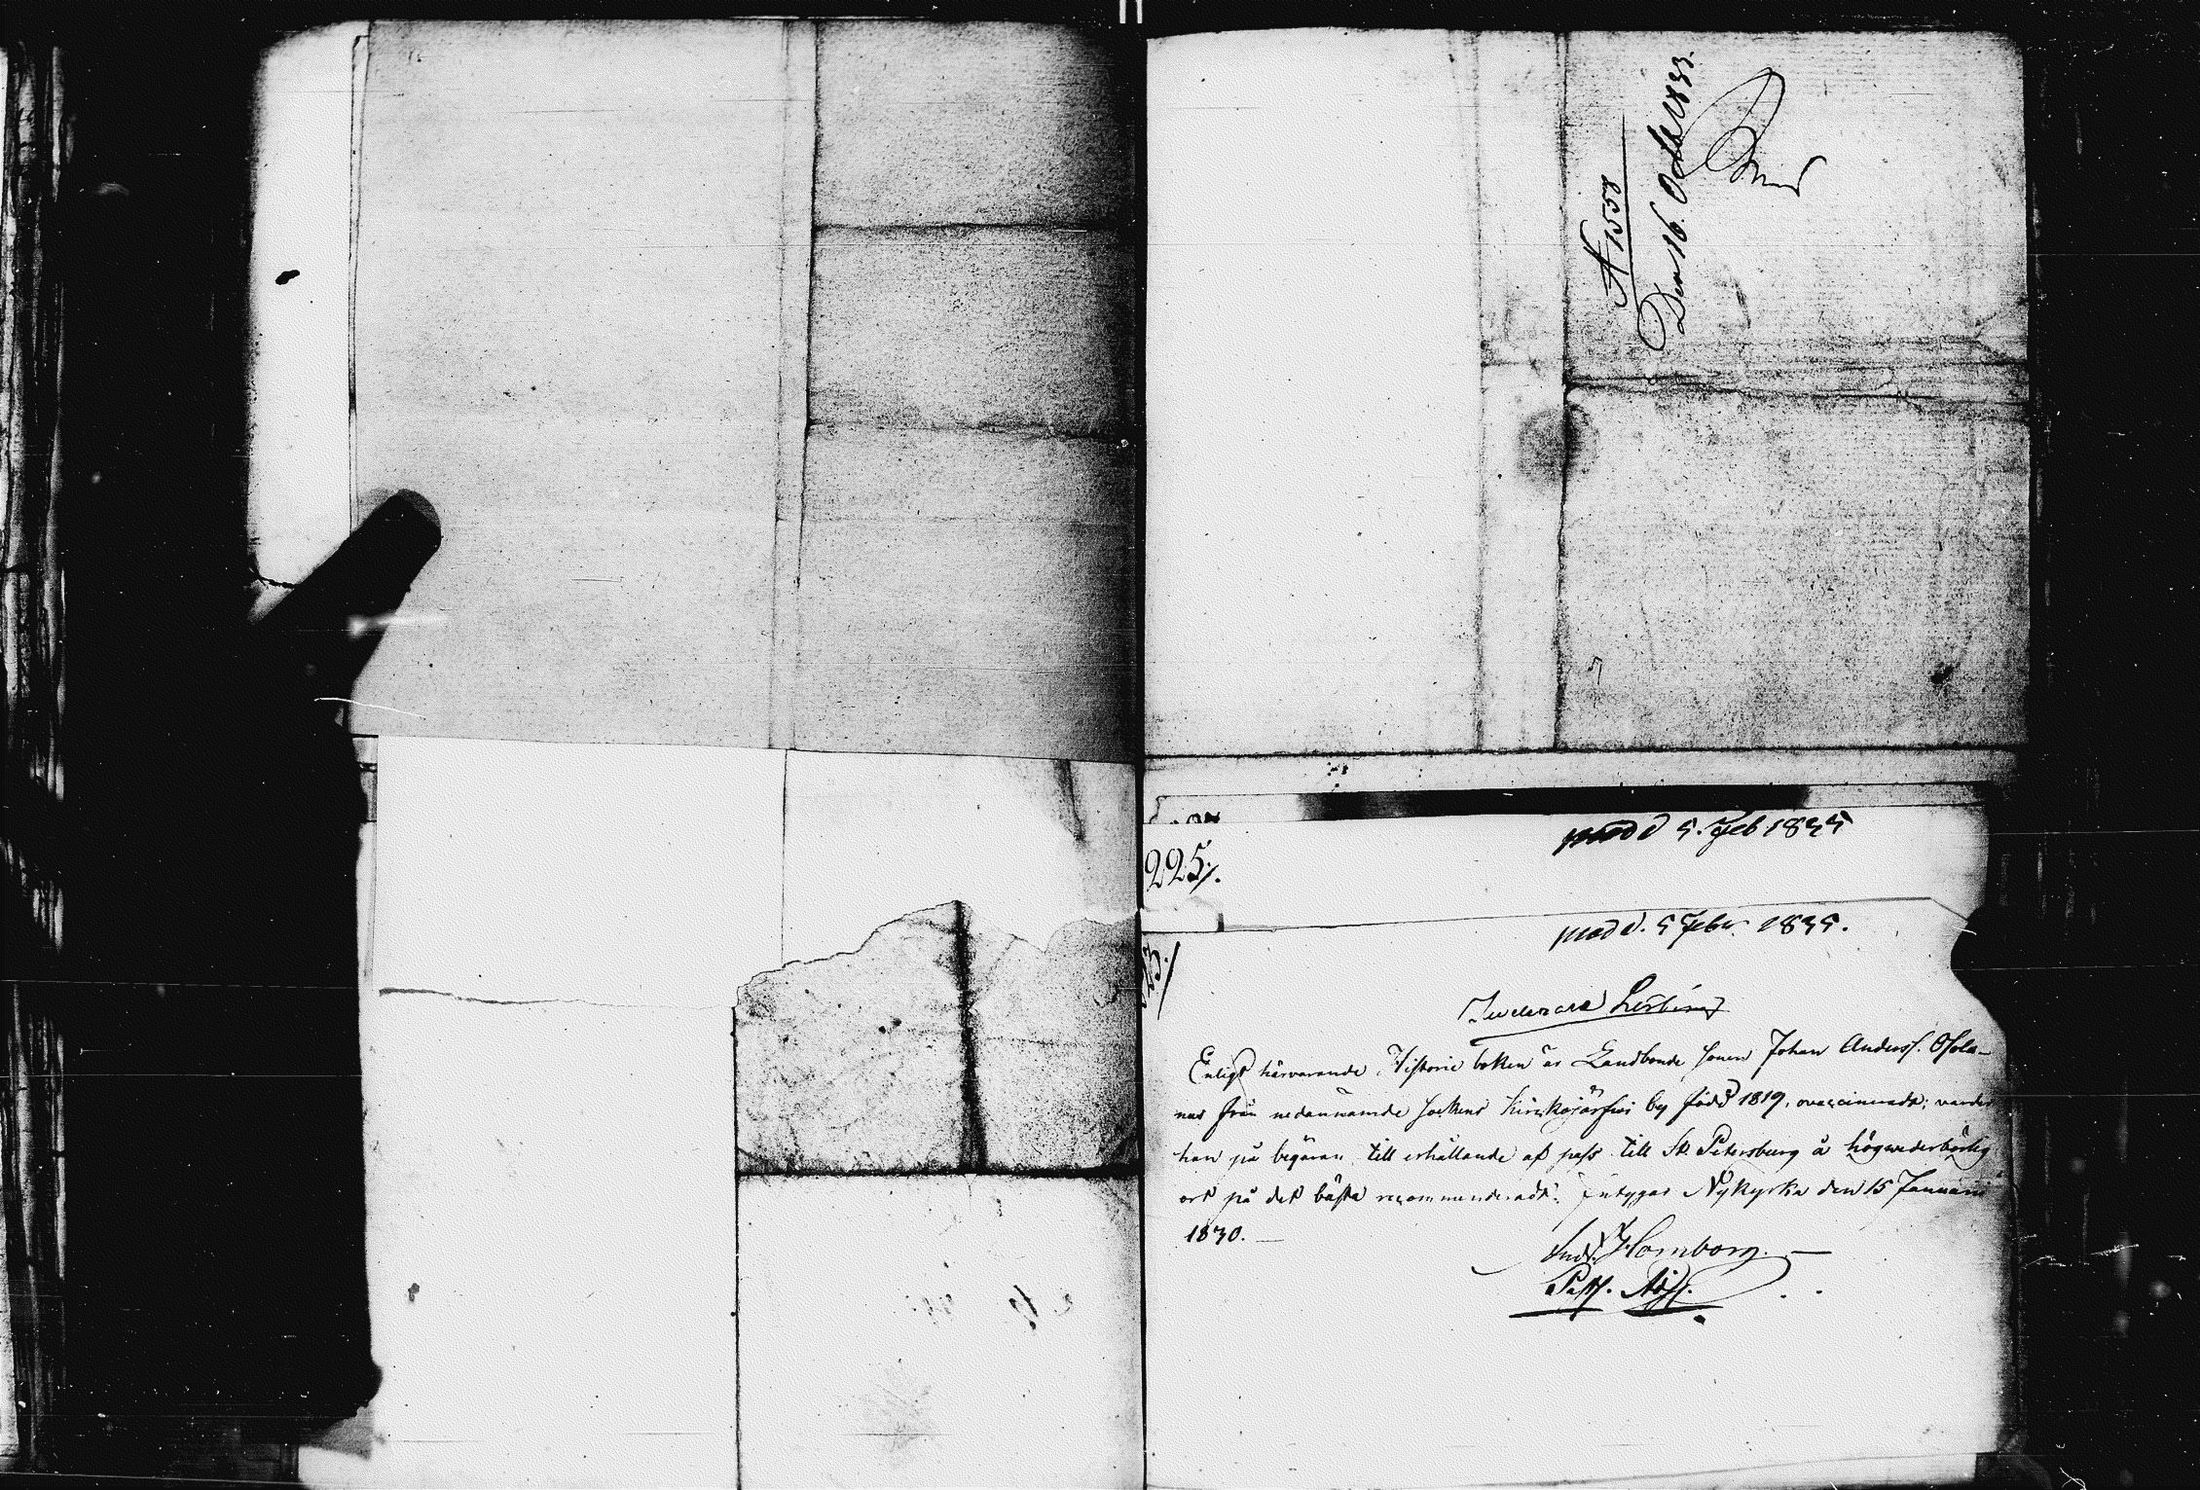 N 1558
Den 16. Octob 1833.
prod d 5. Feb 1835
225/.
prod d. 5 Febr. 1835.
23/
Enligt härvarande Historie boken är Landbonde sonen Johan Anderss.
nus från nedannämde Sockens Kirckojärfwi by född 1819, ovaccinerad; varder
han på begäran till erhållande af pass till St Petersburg å högvederbörlig
ort på det bästa recommenderad: intygar Nykyrka den 15 Januarii
1830. —
And. Homborg. —